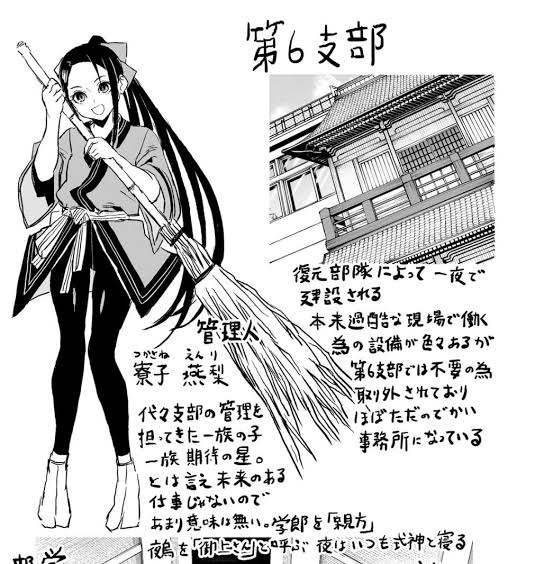 第6支部
復元部隊によって一夜で
建設される
本来過酷な現場で働く
為の設備が色々あるが
第6支部では不要の為
取り外されており
ほぼただのでかい
事務所になっている
管理人
つかさね えんり
寮子 燕梨
代々支部の管理を
担ってきた一族の子
一族期待の星。
とは言え未来のある
仕事じゃないので
あまり意味は無い。学郎を「親方」
夜鳥を「御上さん」と呼ぶ 夜はいつも式神と寝る